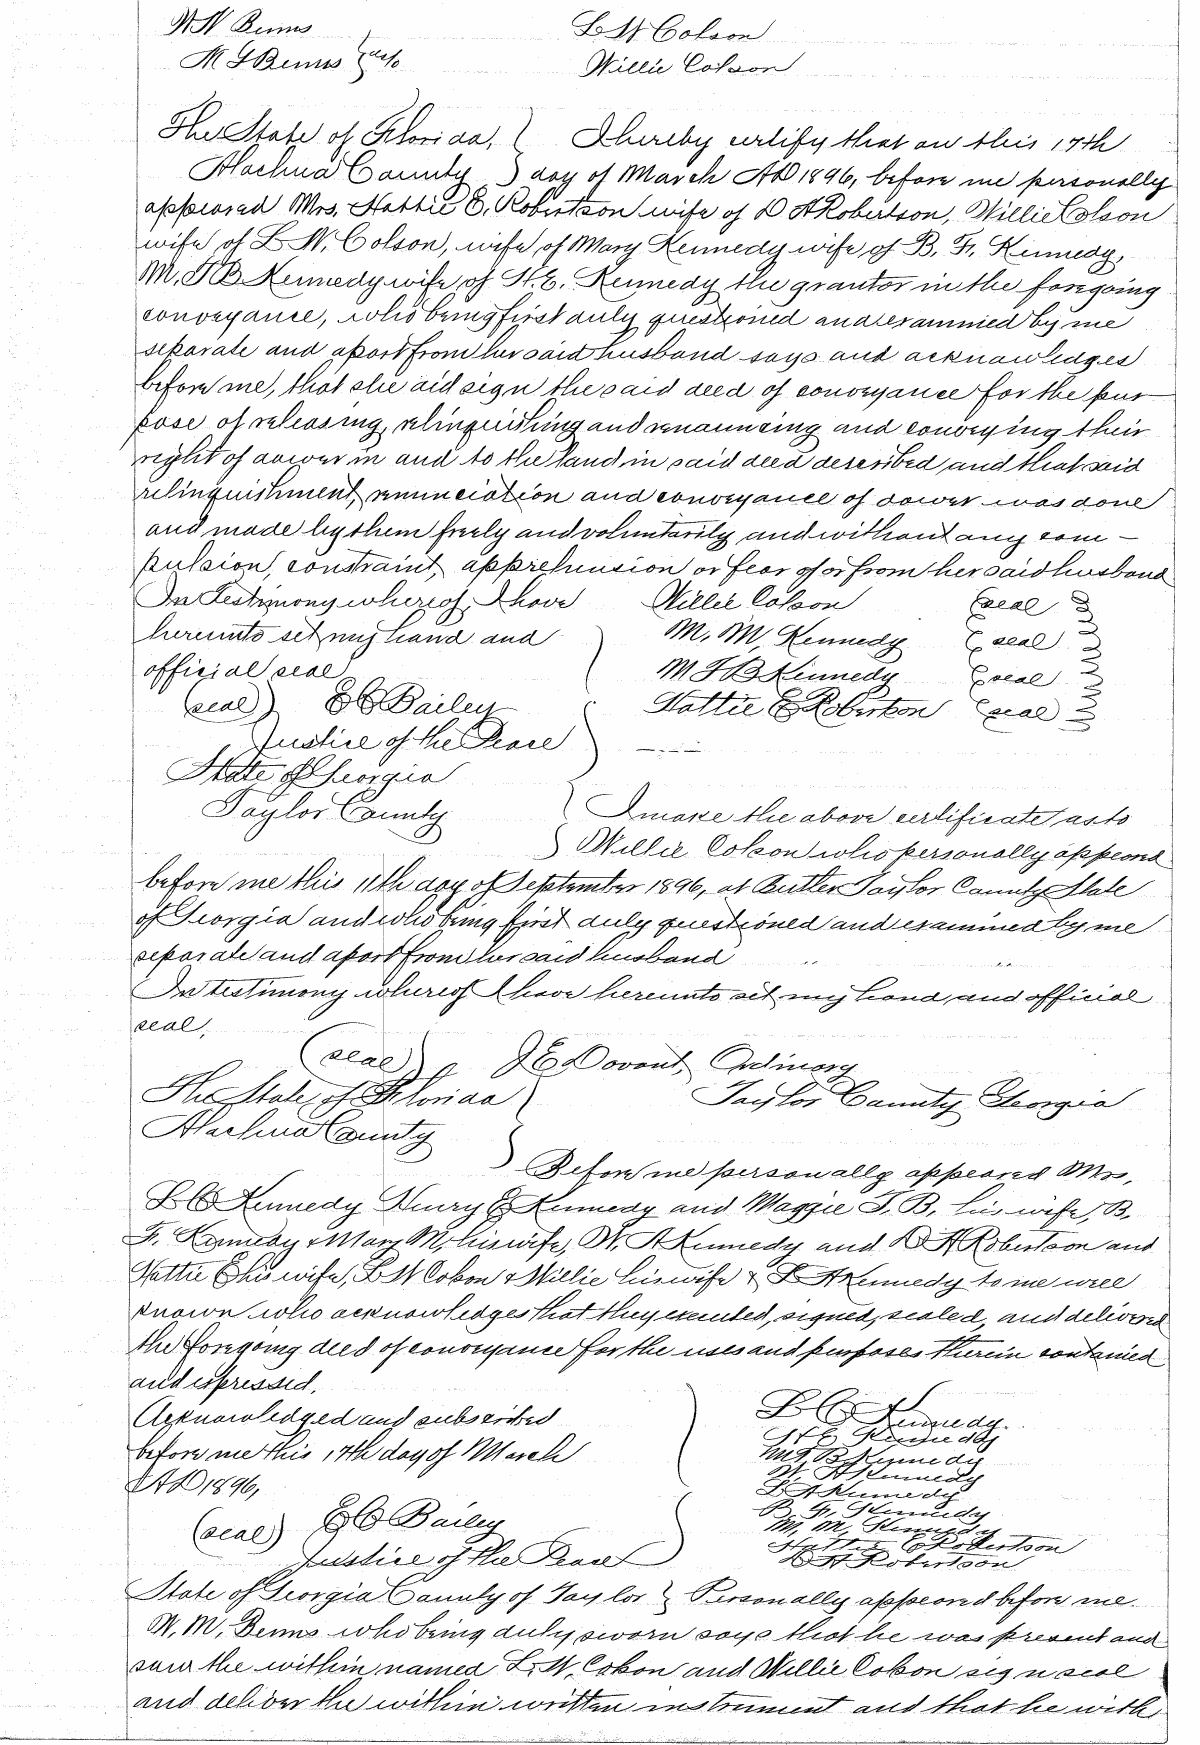 W W Benns L W Colson
M J Benns Willie Colson
The State of Florida, I hereby certify that on this 17th
Alachua County day of March AD 1896, before me personally
appeared Mrs, Hattie E, Robertson wife of D A Robertson, Willie Colson
wife of L W, Colson, wife of Mary Kennedy wife of B. F, Kennedy,
M, J B Kennedy wife of H. E. Kennedy the grantor in the foregoing
conveyance, who being first duly questioned and examined by me
separate and apart from her said husband says and acknowledges
before me, that she did sign the said deed of conveyance for the pur
pose of releasing, relinquishing and renouncing and conveying their
right of dower in and to the land in said deed described and that said
relinquishment, renunciation and conveyance of dower was done
and made by them freely and voluntarily and without any com-
pulsion, constraint, apprehension or fear of or from her said husband
In testimony whereof, I have Willie Colson (seal)
hereunto set my hand and M, M, Kennedy (seal)
official seal M J B Kennedy (seal)
(seal) E C Bailey Hattie E Robertson (seal)
Justice of the Peace
State of Georgia
Taylor County I make the above certificate as to
Willie Colson who personally appeared
before me this 11th day of September 1896, at Butler Taylor County State
of Georgia and who being first duly questioned and examined by me
separate and apart from her said husband
In testimony whereof I have hereunto set my hand and official
seal,
(seal) J E Davant, Ordinary
The State of Florida Taylor County Georgia
Alachua County
Before me personally appeared Mrs,
L C Kennedy Henry E Kennedy and Maggie J. B. his wife, B.
F. Kennedy & Mary M, his wife, W. A Kennedy and D A Robertson and
Hattie E his wife, L W Colson & Willie his wife & L A Kennedy to me well
known who acknowledges that they executed, signed, sealed, and delivered
the foregoing deed of conveyance for the uses and purposes therein contained
and expressed,
Acknowledged and subscribed L C Kennedy.
before me this 17th day of March H E Kennedy
AD 1896, M J B Kennedy
W. A Kennedy
L A Kennedy
B F. Kennedy
(seal) E C Bailey M, M, Kennedy
Hattie E Robertson
Justice of the Peace D A Robertson
State of Georgia County of Taylor Personally appeared before me.
W, M, Benns who being duly sworn says that he was present and
saw the within named L. W, Colson and Willie Colson sign seal
and deliver the within written instrument and that he with